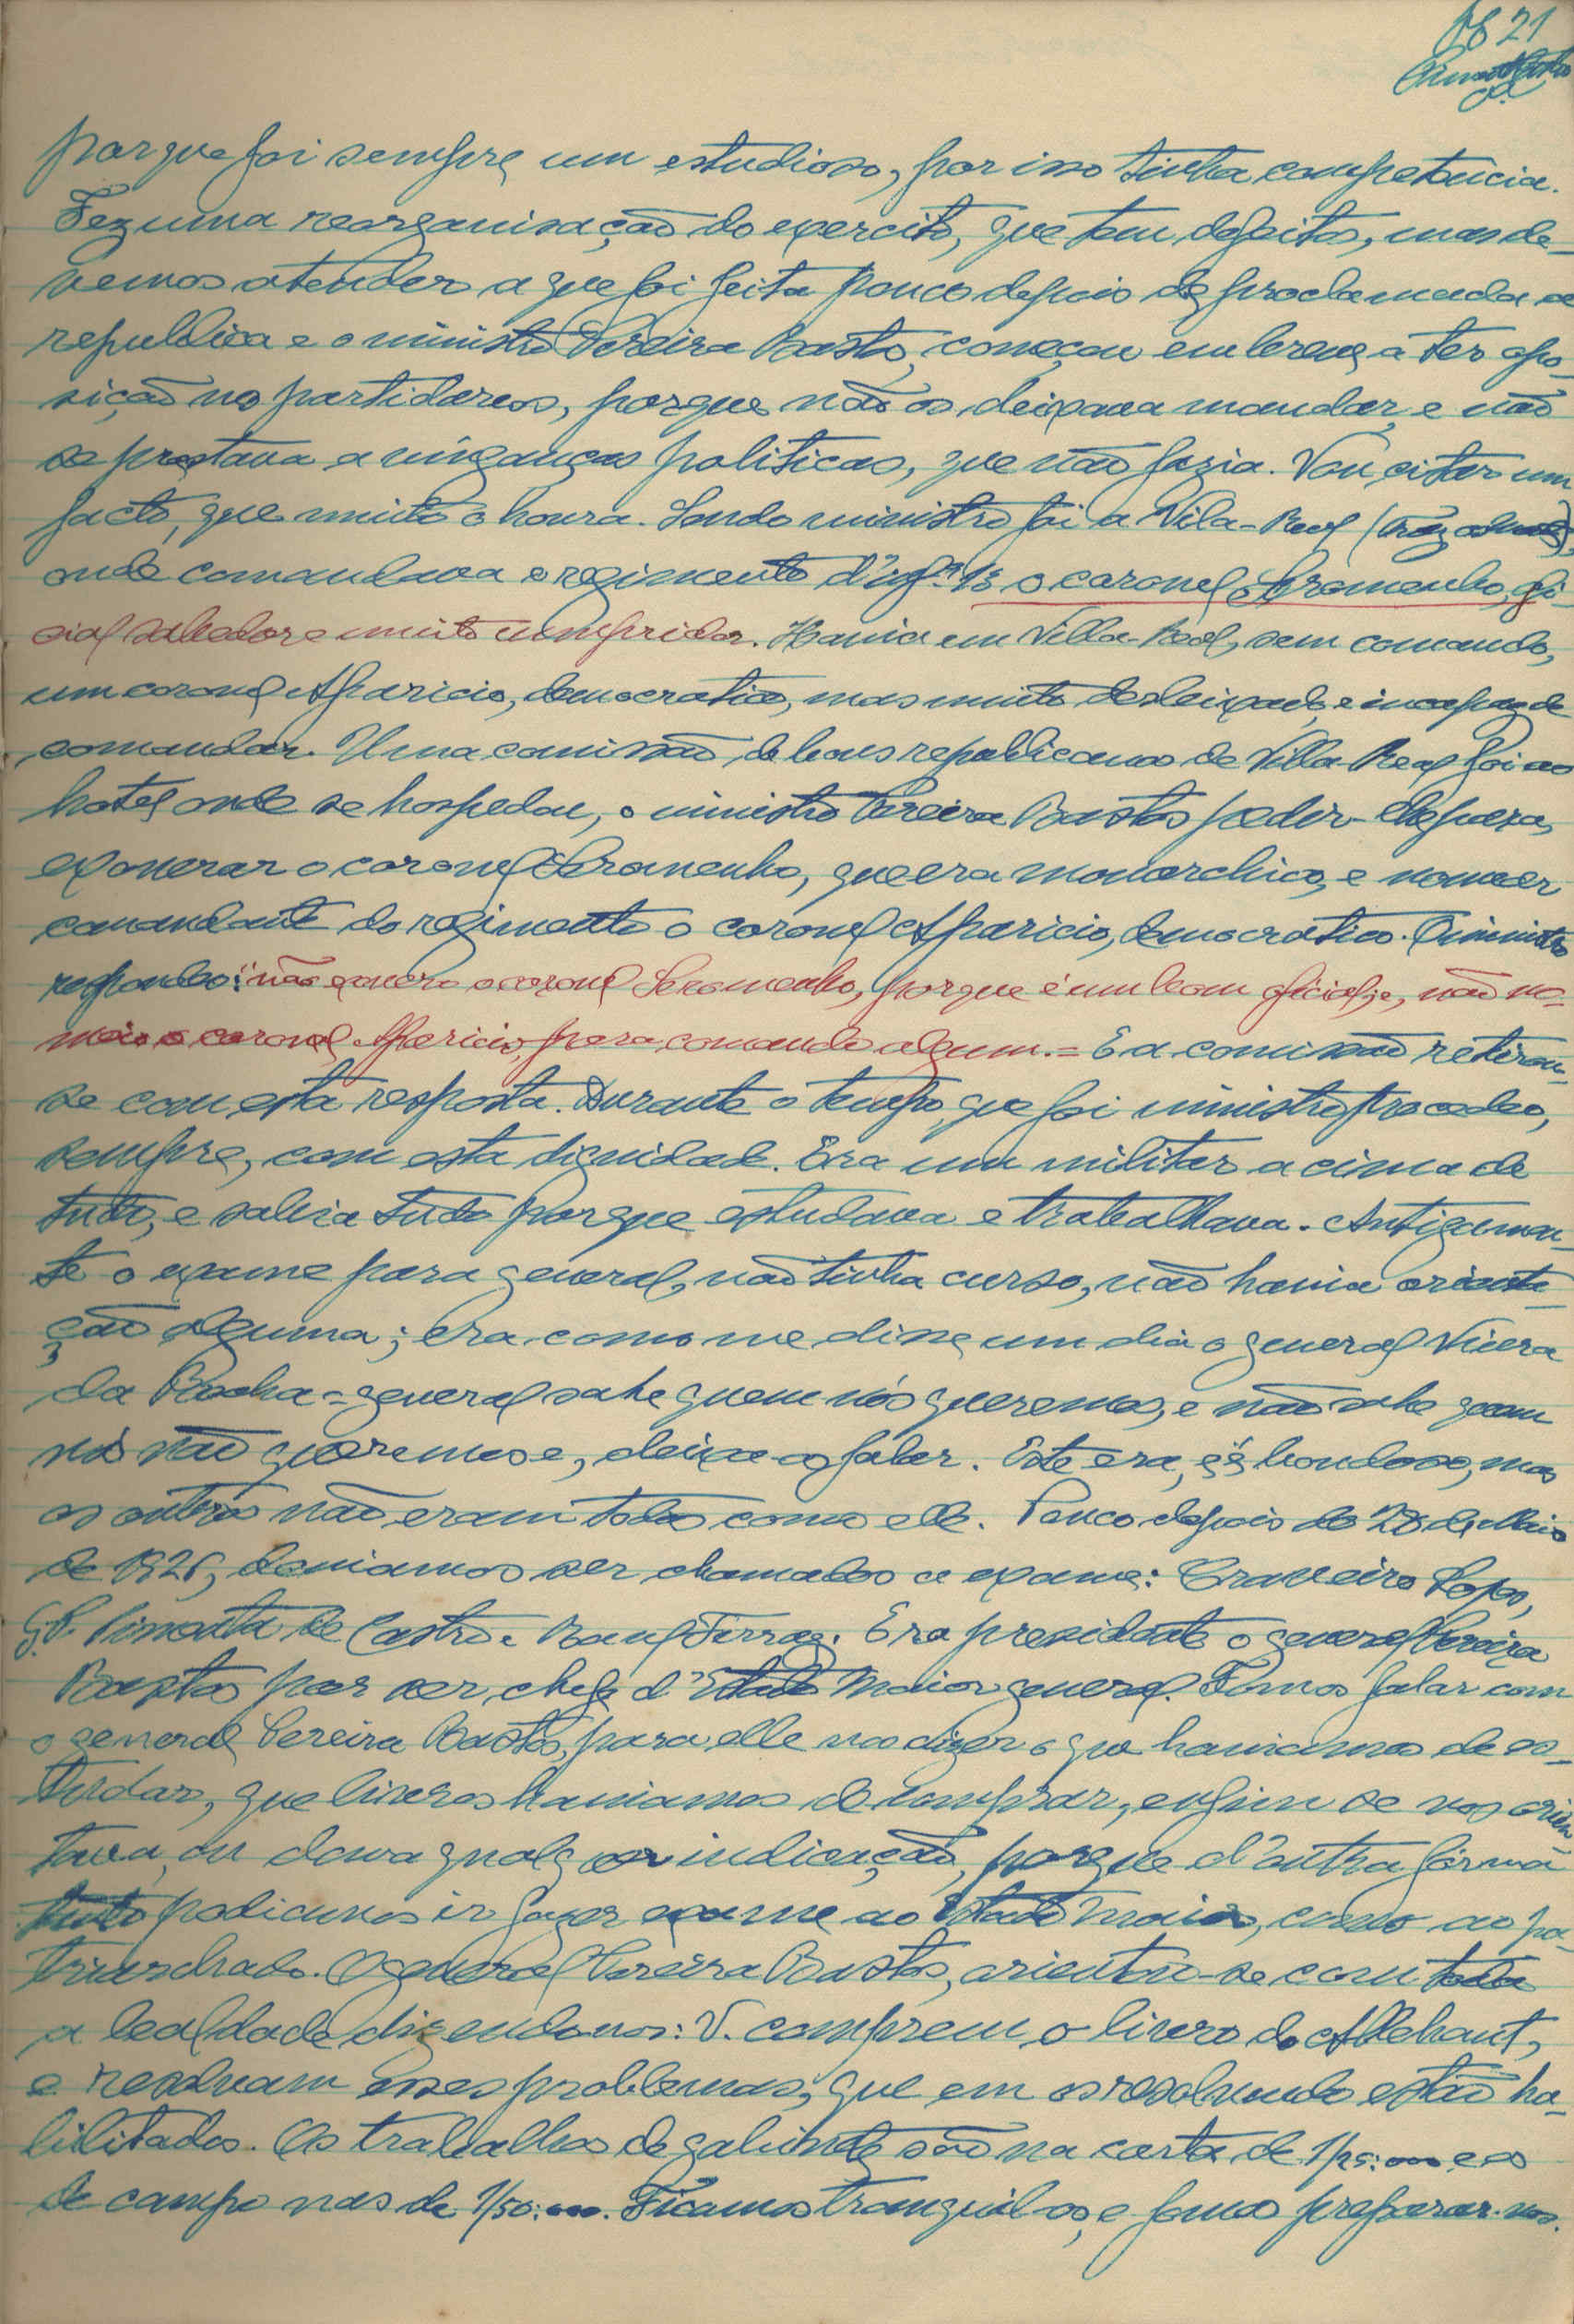 21
porque foi sempre um estudioso, por isso tinha competencia.
Fez uma reorganisação do exercito, que tem defeitos, mas de-
vemos atender a que foi feita pouco depois de proclamada a
republica e o ministro Pereira Bastos, começou em breve a ter opo-
sição nos partidarios, porque não os deixava mandar, e não
se prestava a vinganças politicas, que não fazia. Vou citar um
facto, que muito o honra. Sendo ministro foi a Vila-Real (Traz os montes),
onde comandava o regimento d'infª 13 o coronel Sromenho, ofi-
cial sabedor e muito cumpridor. Havia em Villa-Real, sem comando,
um coronel Aparicio, democratico, mas muito desleixado, e incapaz de
comandar. Uma comissão de bons republicanos de Villa-Real foi ao
hotel onde se hospedou, o ministro Pereira Bastos pedir-lhe para,
exonerar o coronel Sromenho, que era monarchico, e nomear
comandante do regimento o coronel Aparicio, democratico. O ministro
respondeo: "não exonero o coronel Seromenho, porque é um bom oficial, e, não no-
meio o coronel Aparicio, para comando algum.= E a comissão retirou-
se com esta resposta. Durante o tempo, que foi ministro procedeo,
sempre, com esta dignidade. Era um militar acima de
tudo, e sabia tudo porque estudava e trabalhava. Antigamen-
te o exame para general, não tinha curso, não havia orienta-
ção alguma; era como me disse um dia o general Vieira
da Rocha = general sabe quem nós queremos, e não sabe quem
nós não queremos e, deixe-os falar. Este era, bondoso, mas
os outros não eram todos como elle. Pouco depois do 28 de Maio
de 1926, deviamos ser chamados a exame: Craveiro Lopes,
Pimenta de Castro e Raul Ferraz. Era presidente o general Pereira
Bastos por ser, chefe d'Estado Maior general. Fomos falar com
o general Pereira Bastos, para elle nos dizer o que haviamos de es-
tudar, que livros haviamos de comprar, enfim se nos orien-
tava, ou dava qualquer indicação, porque d'outra fórma
tanto podiamos ir fazer exame ao Estado Maior, como ao pa-
triarchado. O general Pereira Bastos, orientou-se com toda
a lealdade dizendo nos: V. comprem o livro do Allehaut,
e resolvam esses problemas, que em os resolvendo estão ha-
bilitados. Os trabalhos de gabinete são na carta de 1/25:000 e os
de campo nas de 1/50:000. Ficamos tranquilos, e fomos preparar-nos.